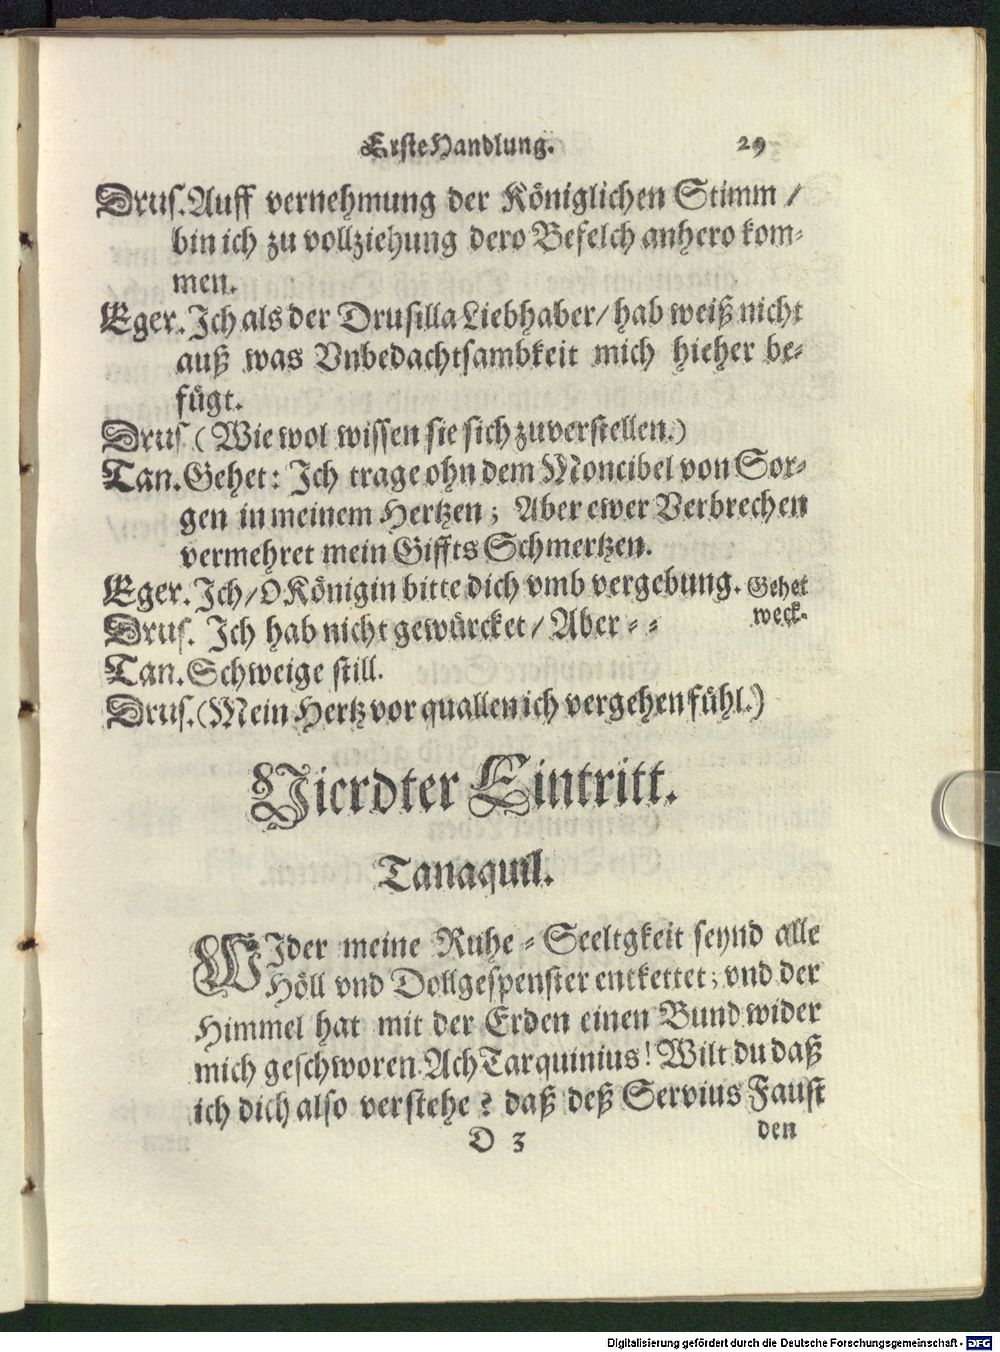 Erste Handlung. 29
Drus. Auff vernehmung der Königlichen Stimm /
bin ich zu vollziehung dero Befelch anhero kom-
men.
Eger. Ich als der Drusilla Liebhaber / hab weiß nicht
auß was Vnbedachtsambkeit mich hieher be-
fügt.
Drus. (Wie wol wissen sie sich zuverstellen.)
Tan. Gehet: Ich trage ohn dem Moncibel von Sor-
gen in meinem Hertzen; Aber ewer Verbrechen
vermehret mein Giffts Schmertzen.
Eger. Ich / O Königin bitte dich vmb vergebung. Gehet
weck.
Drus. Ich hab nicht gewürcket / Aber - -
Tan. Schweige still.
Drus. (Mein Hertz vor quallen ich vergehen fühl.)
Vierdter Eintritt.
Tanaquil.
WIder meine Ruhe-Seeligkeit seynd alle
Höll vnd Dollgespenster entkettet; vnd der
Himmel hat mit der Erden einen Bund wider
mich geschworen. Ach Tarquinius! Wilt du daß
ich dich also verstehe? daß deß Servius Faust
D 3 den
Digitalisierung gefördert durch die Deutsche Forschungsgemeinschaft - DFG